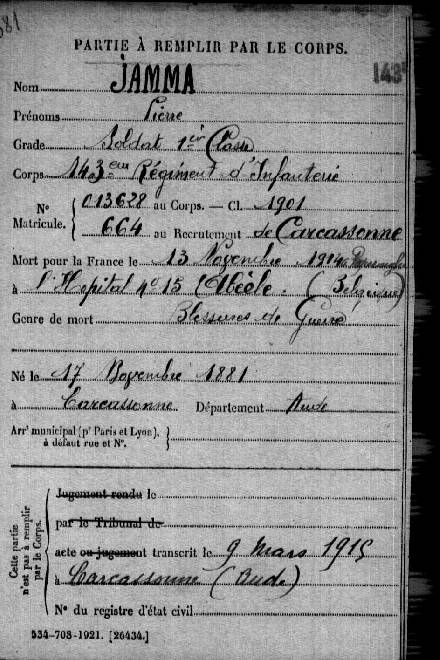 381
PARTIE À REMPLIR PAR LE CORPS.
143
Nom JAMMA
Prénoms Pierre
Grade Soldat 1er Classe
Corps 143eme Régiment d'Infanterie
N° Matricule. { 013628 au Corps. — Cl. 1901
664 au Recrutement de Carcassonne
Mort pour la France le 13 Novembre 1914
à l'Hopital n° 15 Abéele. (Belgique)
Genre de mort Blessures de Guerre
Né le 17 Novembre 1881
à Carcassonne Département Aude
Arrt municipal (pr Paris et Lyon), à défaut rue et N°. }
Cette partie n'est pas à remplir par le Corps.
Jugement rendu le
par le Tribunal de
acte ou jugement transcrit le 9 Mars 1915
à Carcassonne (Aude)
N° du registre d'état civil
534-708-1921. [26434.]